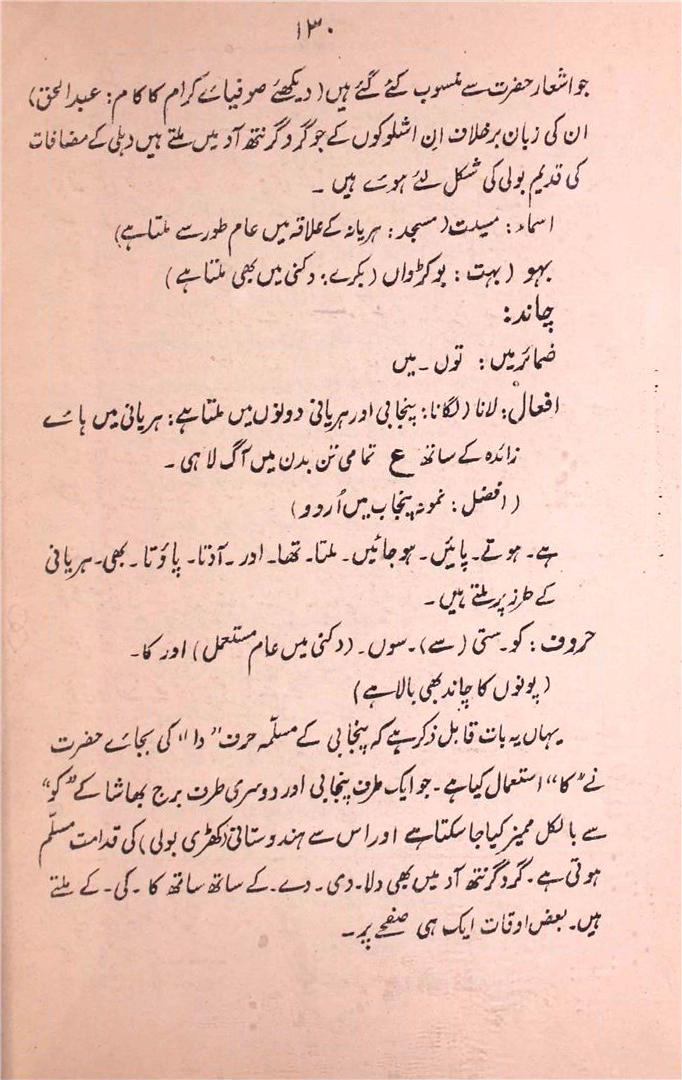 ۱۳۰
جو اشعار حضرت سے منسوب کئے گئے ہیں (دیکھئے صوفیائے کرام کا کام: عبدالحق)
ان کی زبان برخلاف ان اشلوکوں کے جو گرو گرنتھ آد میں ملتے ہیں دہلی کے مضافات
کی قدیم بولی کی شکل لئے ہوئے ہیں ۔
اسماء: میست (مسجد: ہریانہ کے علاقہ میں عام طور سے ملتا ہے)
بہو (بہت: بوکڑواں (بکرے: دکنی میں بھی ملتا ہے)
چاند:
ضمائر میں: توں ۔ میں
افعال: لانا (لگانا: پنجابی اور ہریانی دونوں میں ملتا ہے: ہریانی میں ہائے
زائدہ کے ساتھ ع تمامی تن بدن میں آگ لاہی ۔
(افضل: نمونہ پنجاب میں اُردو)
ہے۔ ہوتے۔ پائیں۔ ہو جائیں۔ ملتا۔ تھا۔ اور۔ آدتا۔ پاؤتا۔ بھی۔ ہریانی
کے طرز پر ملتے ہیں۔
حروف: کو۔ ستی (سے)۔ سوں۔ (دکنی میں عام مستعمل) اور کا۔
(پونوں کا چاند بھی بالا ہے)
یہاں یہ بات قابل ذکر ہے کہ پنجابی کے مسلّمہ حرف "دا" کی بجائے حضرت
نے "کا" استعمال کیا ہے۔ جو ایک طرف پنجابی اور دوسری طرف برج بھاشا کے "کو"
سے بالکل ممیز کیا جا سکتا ہے اور اس سے ہندوستانی (کھڑی بولی) کی قدامت مسلّم
ہوتی ہے۔ گرو گرنتھ آد میں بھی دلا۔ دی۔ دے۔ کے ساتھ ساتھ کا۔ کی۔ کے ملتے
ہیں۔ بعض اوقات ایک ہی صفحے پر۔